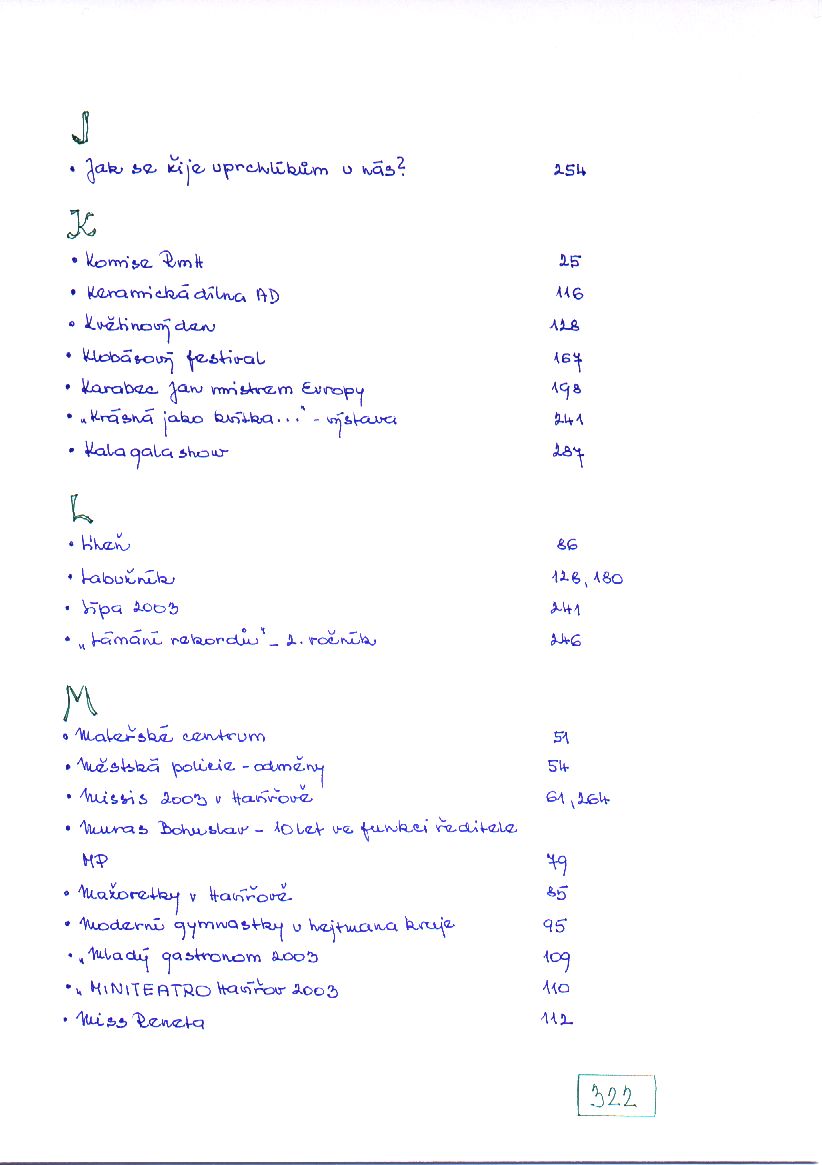 J
• Jak se žije uprchlíkům u nás? 254
K
• Komise RmH 25
• Keramická dílna AD 116
• Květinový den 128
• Klobásový festival 167
• Karabec Jan mistrem Evropy 198
• „Krásná jako kvítka..." - výstava 241
• Kala gala show 287
L
• Líheň 86
• Labužník 128, 180
• Lípa 2003 241
• „Lámání rekordů" - 2. ročník 246
M
• Mateřské centrum 51
• Městská policie - odměny 54
• Missis 2003 v Havířově 61, 264
• Muras Bohuslav - 10 let ve funkci ředitele
MP 79
• Mažoretky v Havířově 85
• Moderní gymnastky u hejtmana kraje 95
• „Mladý gastronom 2003 109
• „MINITEATRO Havířov 2003 110
• Miss Reneta 112
322